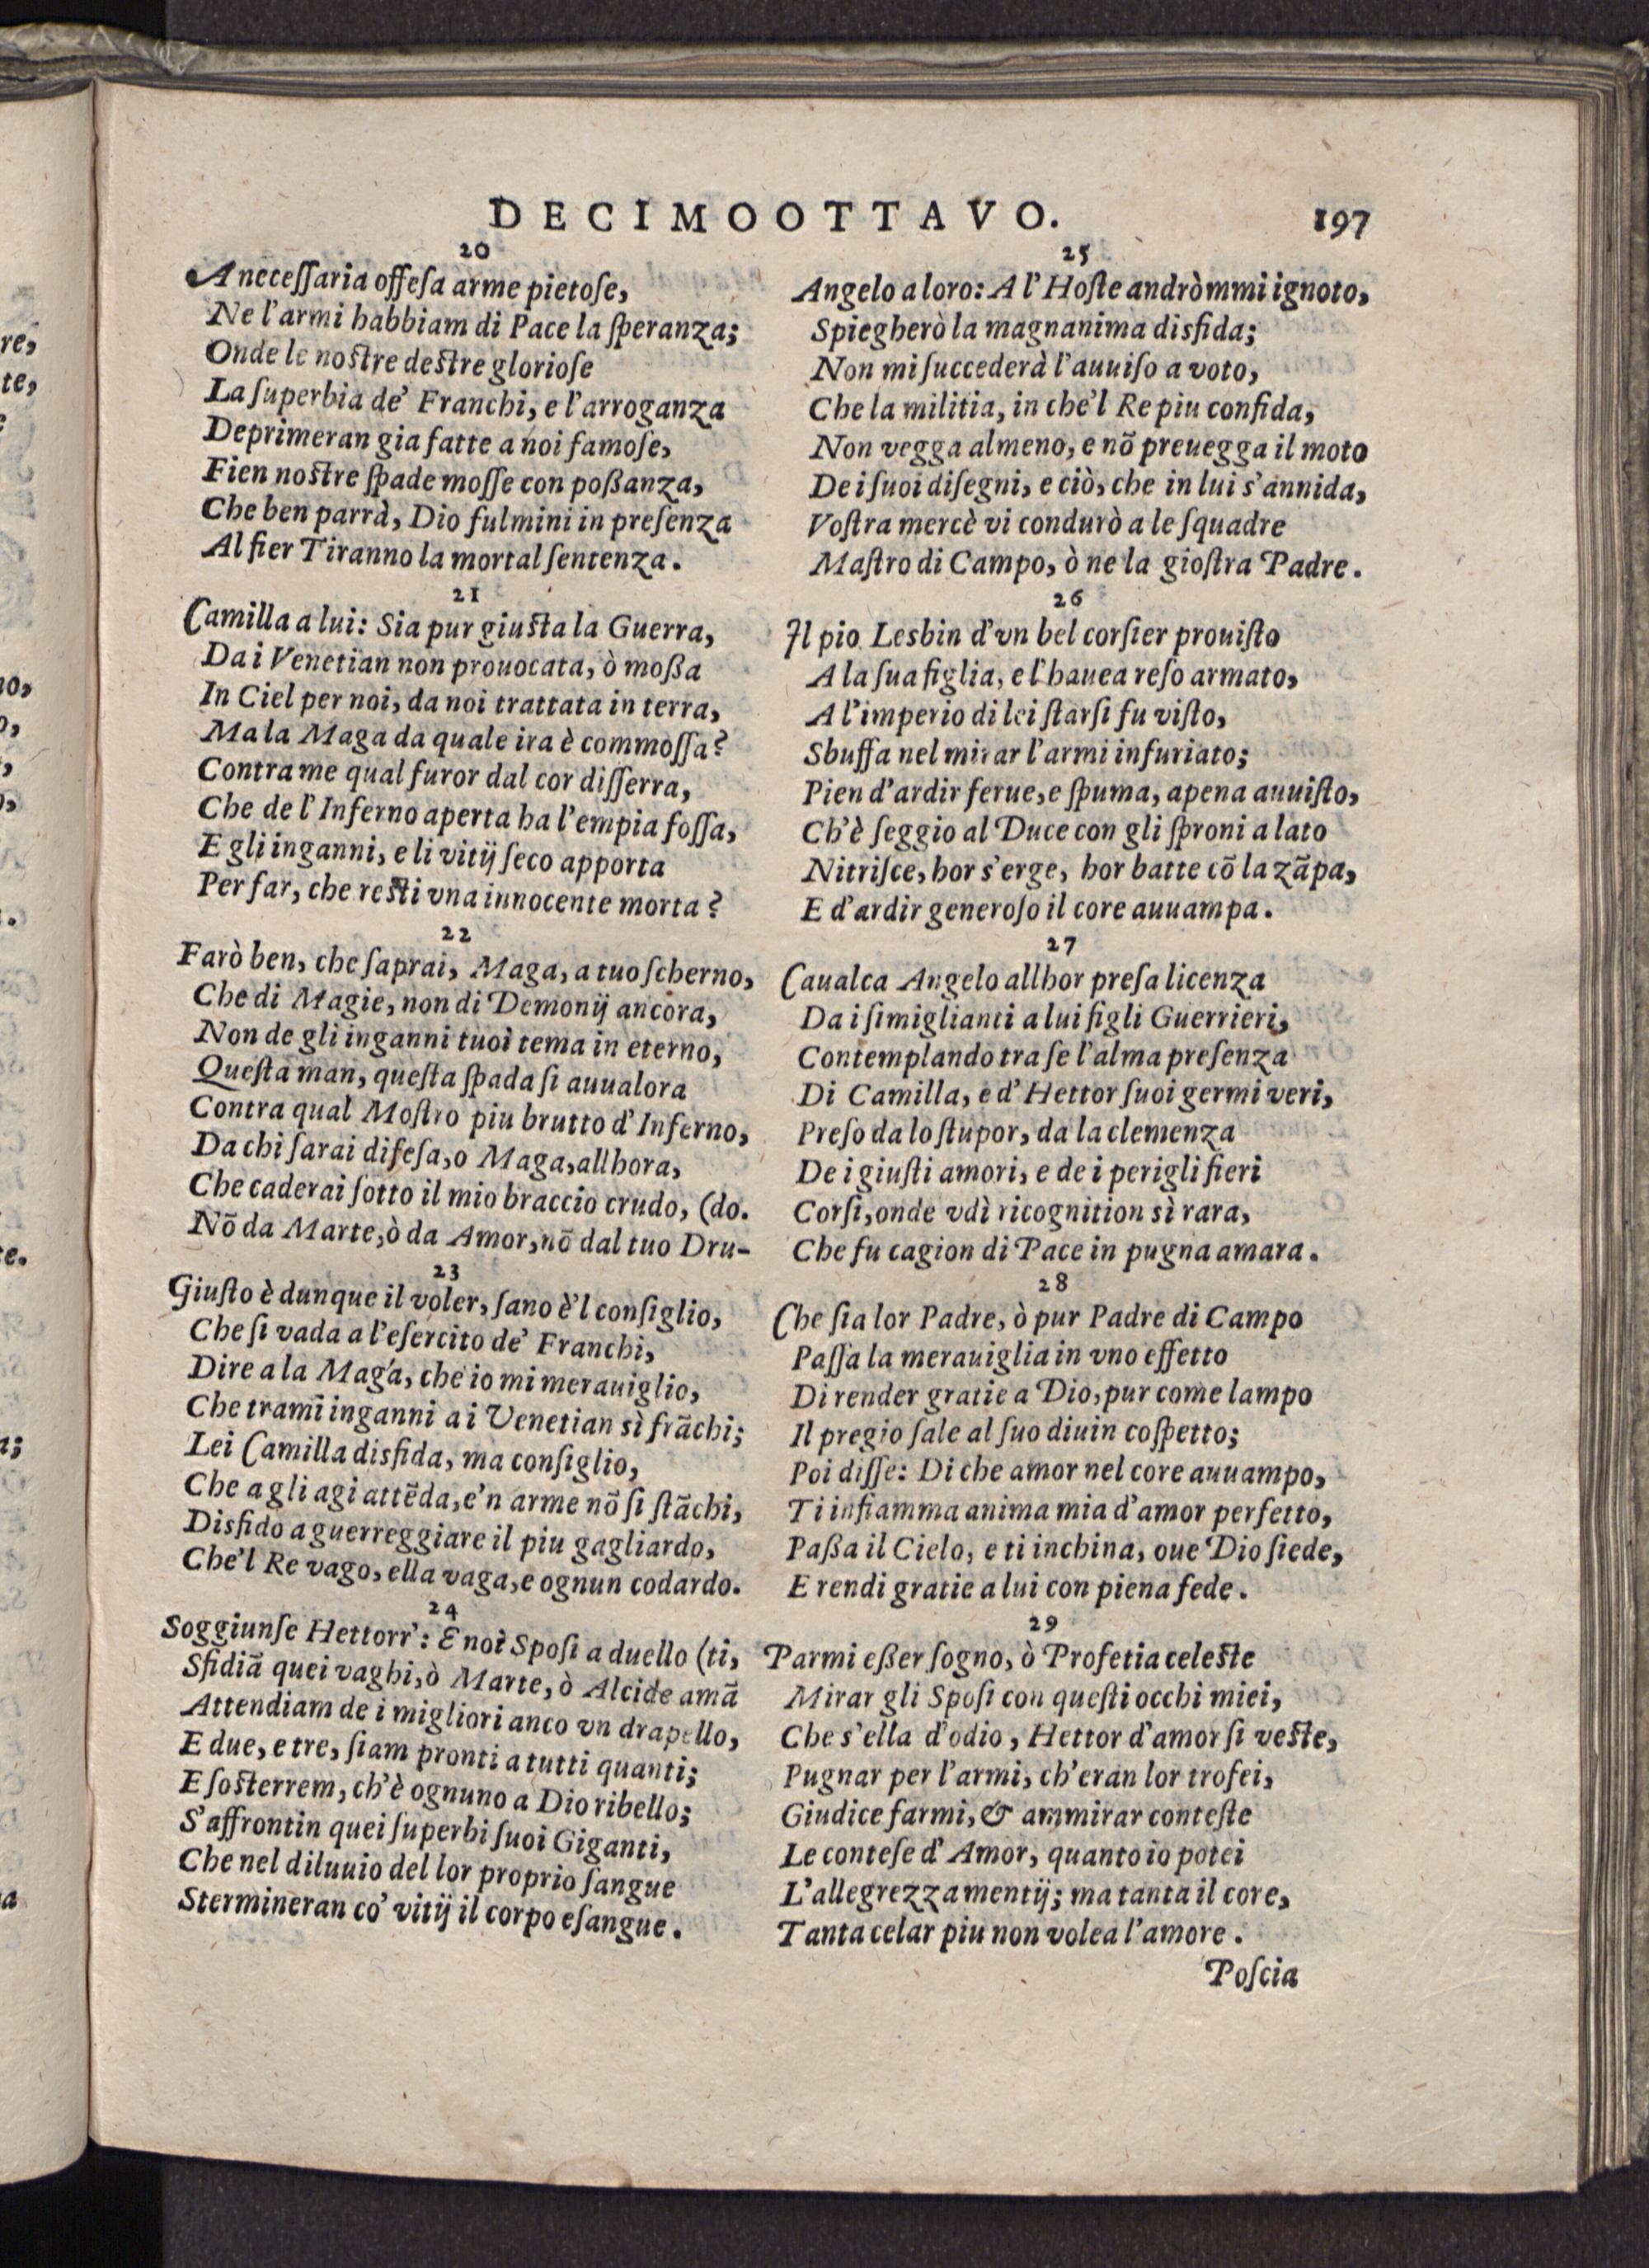 DECIMOOTTAVO. 197
20
A necessaria offesa arme pietose,
Ne l'armi habbiam di Pace la speranza;
Onde le nostre destre gloriose
La superbia de' Franchi, e l'arroganza
Deprimeran gia fatte a noi famose,
Fien nostre spade mosse con possanza,
Che ben parrà, Dio fulmini in presenza
Al fier Tiranno la mortal sentenza.
21
Camilla a lui: Sia pur giusta la Guerra,
Da i Venetian non prouocata, ò mossa
In Ciel per noi, da noi trattata in terra,
Ma la Maga da quale ira è commossa?
Contra me qual furor dal cor disserra,
Che de l'Inferno aperta ha l'empia fossa,
E gli inganni, e li vitij seco apporta
Per far, che resti vna innocente morta?
22
Farò ben, che saprai, Maga, a tuo scherno,
Che di Magie, non di Demonij ancora,
Non de gli inganni tuoi tema in eterno,
Questa man, questa spada si auualora
Contra qual Mostro piu brutto d'Inferno,
Da chi sarai difesa, o Maga, allhora,
Che caderai sotto il mio braccio crudo, (do.
Nō da Marte, ò da Amor, nō dal tuo Dru-
23
Giusto è dunque il voler, sano è'l consiglio,
Che si vada a l'esercito de' Franchi,
Dire a la Maga, che io mi merauiglio,
Che trami inganni a i Venetian sì frāchi;
Lei Camilla disfida, ma consiglio,
Che a gli agi attēda, e'n arme nō si stāchi,
Disfido a guerreggiare il piu gagliardo,
Che'l Re vago, ella vaga, e ognun codardo.
24
Soggiunse Hettorr': E noi Sposi a duello (ti,
Sfidiā quei vaghi, ò Marte, ò Alcide amā
Attendiam de i migliori anco vn drapello,
E due, e tre, siam pronti a tutti quanti;
E sosterrem, ch'è ognuno a Dio ribello;
S'affrontin quei superbi suoi Giganti,
Che nel diluuio del lor proprio sangue
Stermineran co' vitij il corpo esangue.
25
Angelo a loro: A l'Hoste andròmmi ignoto,
Spiegherò la magnanima disfida;
Non mi succederà l'auuiso a voto,
Che la militia, in che'l Re piu confida,
Non vegga almeno, e nō preuegga il moto
De i suoi disegni, e ciò, che in lui s'annida,
Vostra mercè vi condurò a le squadre
Mastro di Campo, ò ne la giostra Padre.
26
Il pio Lesbin d'vn bel corsier prouisto
A la sua figlia, e l'hauea reso armato,
A l'imperio di lei starsi fu visto,
Sbuffa nel mirar l'armi infuriato;
Pien d'ardir ferue, e spuma, apena auuisto,
Ch'è seggio al Duce con gli sproni a lato
Nitrisce, hor s'erge, hor batte cō la zāpa,
E d'ardir generoso il core auuampa.
27
Caualca Angelo allhor presa licenza
Da i simiglianti a lui figli Guerrieri,
Contemplando tra se l'alma presenza
Di Camilla, e d'Hettor suoi germi veri,
Preso da lo stupor, da la clemenza
De i giusti amori, e de i perigli fieri
Corsi, onde vdì ricognition sì rara,
Che fu cagion di Pace in pugna amara.
28
Che sia lor Padre, ò pur Padre di Campo
Passa la merauiglia in vno effetto
Di render gratie a Dio, pur come lampo
Il pregio sale al suo diuin cospetto;
Poi disse: Di che amor nel core auuampo,
Ti infiamma anima mia d'amor perfetto,
Passa il Cielo, e ti inchina, oue Dio siede,
E rendi gratie a lui con piena fede.
29
Parmi esser sogno, ò Profetia celeste
Mirar gli Sposi con questi occhi miei,
Che s'ella d'odio, Hettor d'amor si veste,
Pugnar per l'armi, ch'eran lor trofei,
Giudice farmi, & ammirar conteste
Le contese d'Amor, quanto io potei
L'allegrezza mentij; ma tanta il core,
Tanta celar piu non volea l'amore.
Poscia